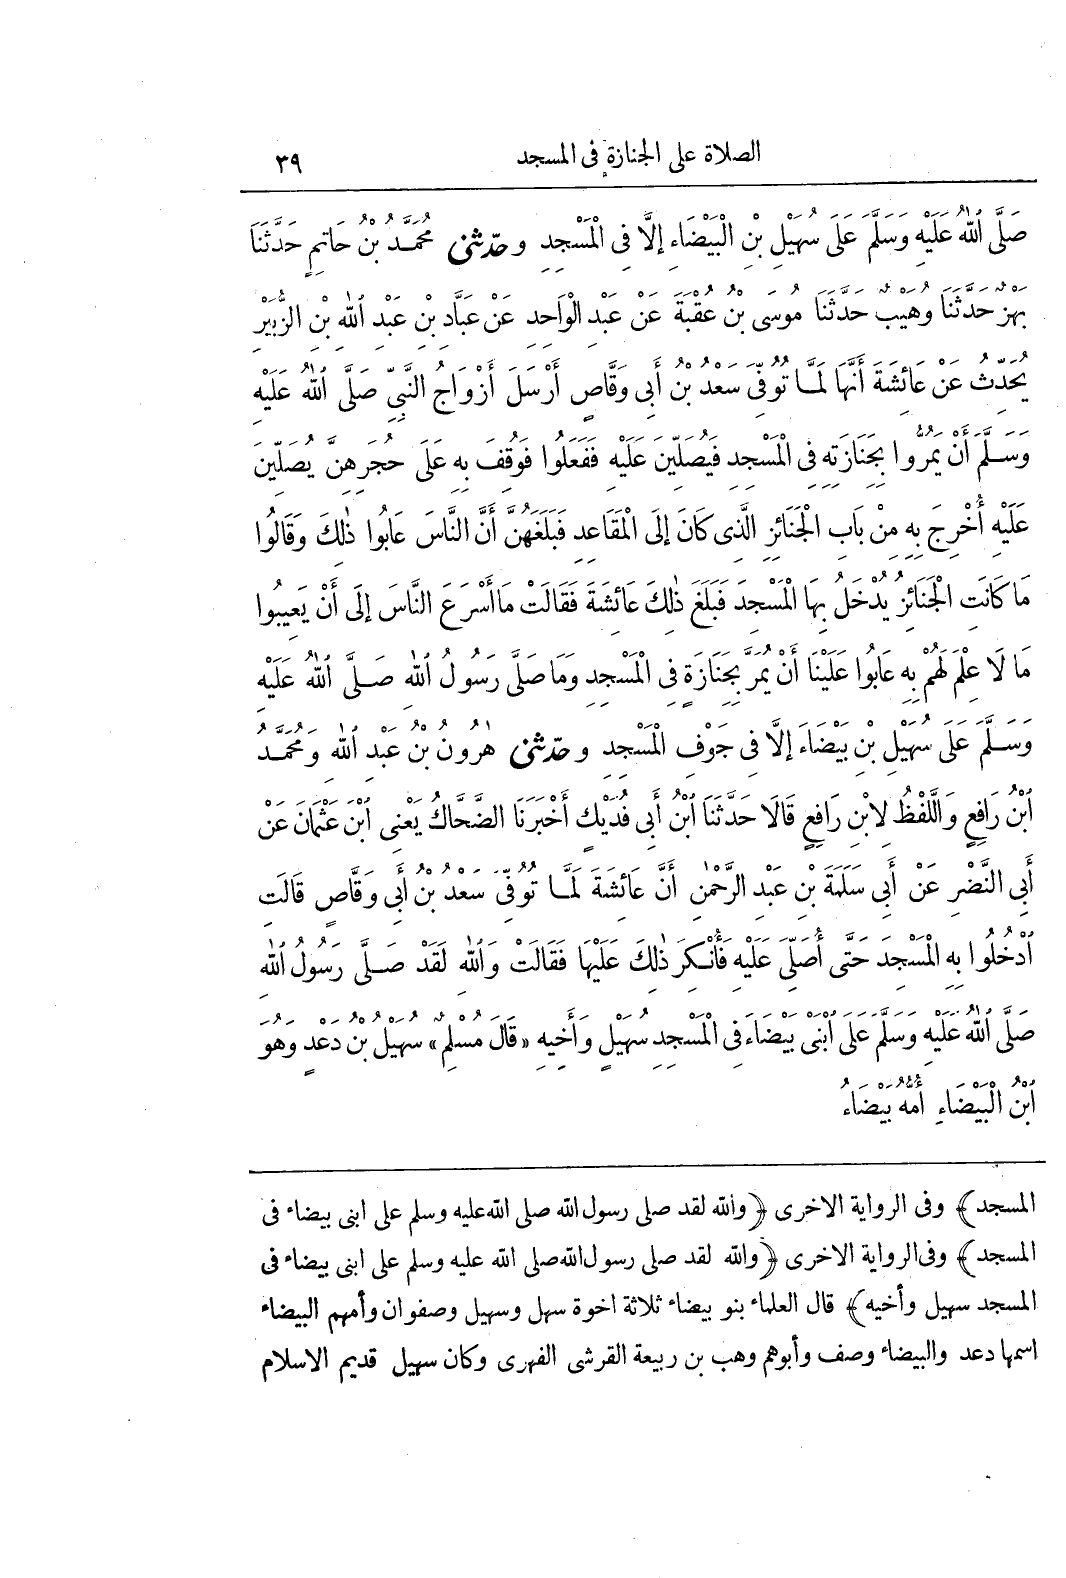 الصلاة على الجنازة فى المسجد ٣٩
صَلَّى ٱللهُ عَلَيْهِ وَسَلَّمَ عَلَى سُهَيْلِ بْنِ الْبَيْضَاءِ إِلَّا فِى الْمَسْجِدِ وحَدَّثَنِى مُحَمَّدُ بْنُ حَاتِمٍ حَدَّثَنَا
بَهْزٌ حَدَّثَنَا وُهَيْبٌ حَدَّثَنَا مُوسَى بْنُ عُقْبَةَ عَنْ عَبْدِ الْوَاحِدِ عَنْ عَبَّادِ بْنِ عَبْدِ ٱللهِ بْنِ الزُّبَيْرِ
يُحَدِّثُ عَنْ عَائِشَةَ أَنَّهَا لَمَّا تُوُفِّىَ سَعْدُ بْنُ أَبِى وَقَّاصٍ أَرْسَلَ أَزْوَاجُ النَّبِىِّ صَلَّى ٱللهُ عَلَيْهِ
وَسَلَّمَ أَنْ يَمُرُّوا بِجَنَازَتِهِ فِى الْمَسْجِدِ فَيُصَلِّينَ عَلَيْهِ فَفَعَلُوا فَوُقِفَ بِهِ عَلَى حُجَرِهِنَّ يُصَلِّينَ
عَلَيْهِ أُخْرِجَ بِهِ مِنْ بَابِ الْجَنَائِزِ الَّذِى كَانَ إِلَى الْمَقَاعِدِ فَبَلَغَهُنَّ أَنَّ النَّاسَ عَابُوا ذٰلِكَ وَقَالُوا
مَا كَانَتِ الْجَنَائِزُ يُدْخَلُ بِهَا الْمَسْجِدَ فَبَلَغَ ذٰلِكَ عَائِشَةَ فَقَالَتْ مَا أَسْرَعَ النَّاسَ إِلَى أَنْ يَعِيبُوا
مَا لَا عِلْمَ لَهُمْ بِهِ عَابُوا عَلَيْنَا أَنْ يُمَرَّ بِجَنَازَةٍ فِى الْمَسْجِدِ وَمَا صَلَّى رَسُولُ ٱللهِ صَلَّى ٱللهُ عَلَيْهِ
وَسَلَّمَ عَلَى سُهَيْلِ بْنِ بَيْضَاءَ إِلَّا فِى جَوْفِ الْمَسْجِدِ وحَدَّثَنِى هٰرُونُ بْنُ عَبْدِ ٱللهِ وَمُحَمَّدُ
ٱبْنُ رَافِعٍ وَاللَّفْظُ لِابْنِ رَافِعٍ قَالَا حَدَّثَنَا ٱبْنُ أَبِى فُدَيْكٍ أَخْبَرَنَا الضَّحَّاكُ يَعْنِى ٱبْنَ عُثْمَانَ عَنْ
أَبِى النَّضْرِ عَنْ أَبِى سَلَمَةَ بْنِ عَبْدِ الرَّحْمٰنِ أَنَّ عَائِشَةَ لَمَّا تُوُفِّىَ سَعْدُ بْنُ أَبِى وَقَّاصٍ قَالَتِ
ٱدْخُلُوا بِهِ الْمَسْجِدَ حَتَّى أُصَلِّىَ عَلَيْهِ فَأُنْكِرَ ذٰلِكَ عَلَيْهَا فَقَالَتْ وَٱللهِ لَقَدْ صَلَّى رَسُولُ ٱللهِ
صَلَّى ٱللهُ عَلَيْهِ وَسَلَّمَ عَلَى ٱبْنَىْ بَيْضَاءَ فِى الْمَسْجِدِ سُهَيْلٍ وَأَخِيهِ «قَالَ مُسْلِمٌ» سُهَيْلُ بْنُ دَعْدٍ وَهُوَ
ٱبْنُ الْبَيْضَاءِ أُمُّهُ بَيْضَاءُ
المسجد﴾ وفى الرواية الاخرى ﴿والله لقد صلى رسول الله صلى الله عليه وسلم على ابنى بيضاء فى
المسجد﴾ وفى الرواية الاخرى ﴿والله لقد صلى رسول الله صلى الله عليه وسلم على ابنى بيضاء فى
المسجد سهيل وأخيه﴾ قال العلماء بنو بيضاء ثلاثة اخوة سهل وسهيل وصفوان وأمهم البيضاء
اسمها دعد والبيضاء وصف وأبوهم وهب بن ربيعة القرشى الفهرى وكان سهيل قديم الاسلام